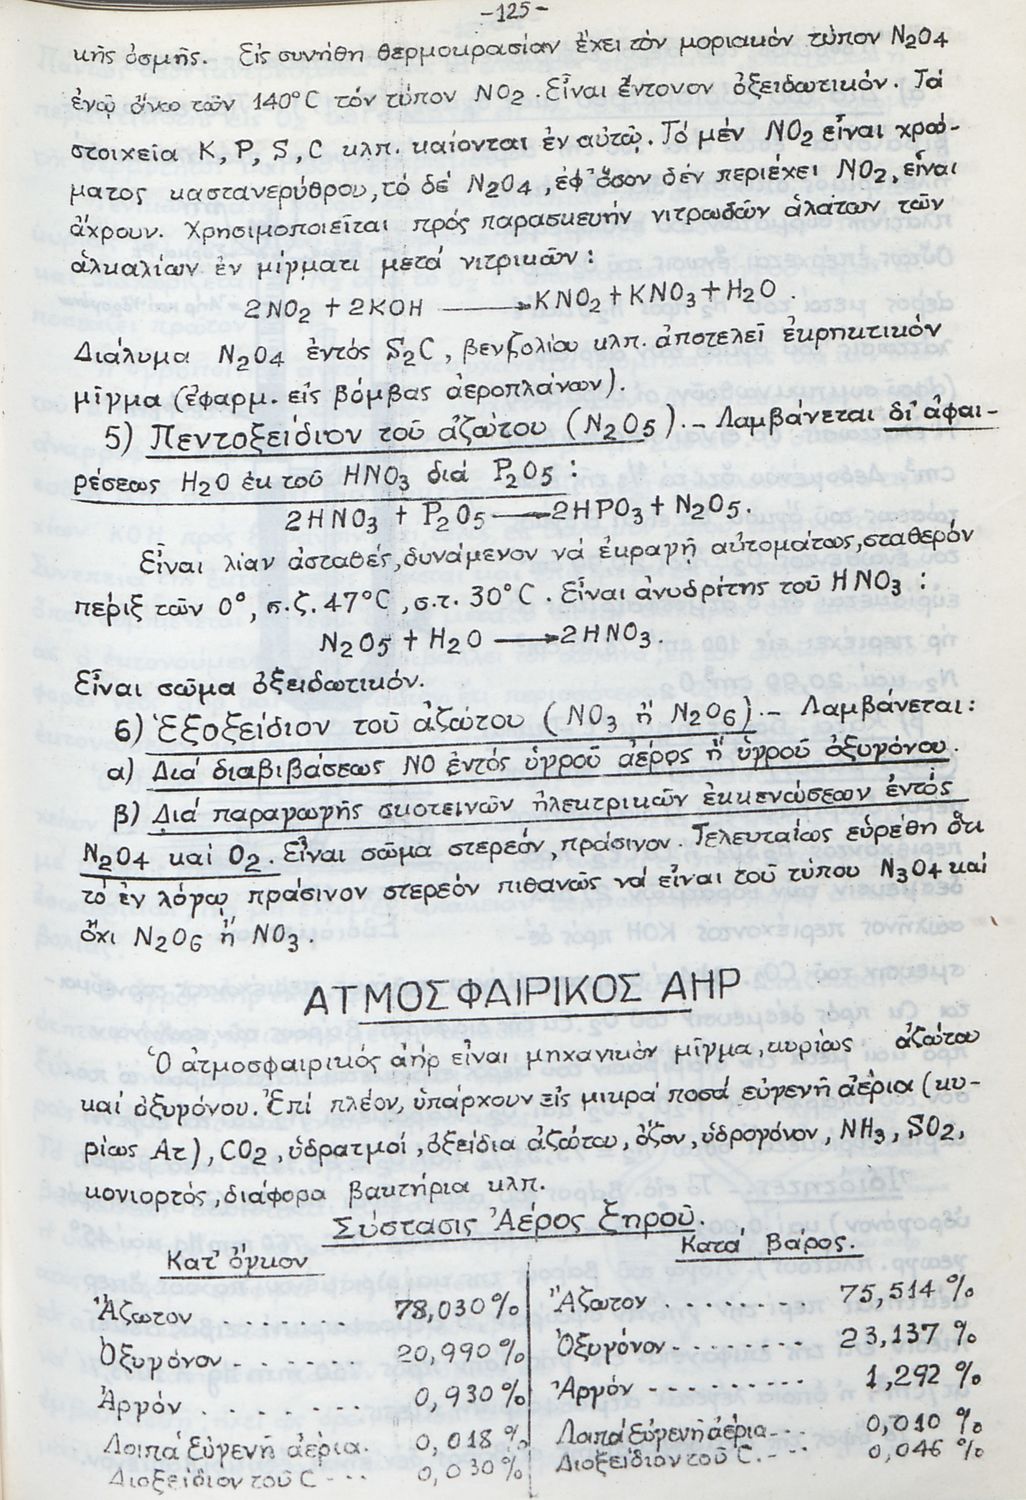 -125-
κῆς ὀσμῆς. Εἰς συνήθη θερμοκρασίαν ἔχει τόν μοριακόν τύπον N₂O₄
ἐνῷ ἄνω τῶν 140°C τόν τύπον NO₂. Εἶναι ἔντονον ὀξειδωτικόν. Τά
στοιχεῖα K, P, S, C κλπ. καίονται ἐν αὐτῷ. Τό μέν NO₂ εἶναι χρώ-
ματος καστανερύθρου, τό δέ N₂O₄, ἐφ' ὅσον δέν περιέχει NO₂, εἶναι
ἄχρουν. Χρησιμοποιεῖται πρός παρασκευήν νιτρωδῶν ἁλάτων τῶν
ἀλκαλίων ἐν μίγματι μετά νιτρικῶν :
2NO₂ + 2KOH ⟶ KNO₂ + KNO₃ + H₂O .
Διάλυμα N₂O₄ ἐντός S₂C, βενζολίου κλπ. ἀποτελεῖ ἐκρηκτικόν
μῖγμα (ἐφαρμ. εἰς βόμβας ἀεροπλάνων).
5) Πεντοξείδιον τοῦ ἀζώτου (N₂O₅). - Λαμβάνεται δι' ἀφαι-
ρέσεως H₂O ἐκ τοῦ HNO₃ διά P₂O₅ :
2HNO₃ + P₂O₅ ⟶ 2HPO₃ + N₂O₅.
Εἶναι λίαν ἀσταθές, δυνάμενον νά ἐκραγῆ αὐτομάτως, σταθερόν
πέριξ τῶν 0°, σ.ζ. 47°C, σ.τ. 30°C. Εἶναι ἀνυδρίτης τοῦ HNO₃ :
N₂O₅ + H₂O ⟶ 2HNO₃.
Εἶναι σῶμα ὀξειδωτικόν.
6) Ἑξοξείδιον τοῦ ἀζώτου (NO₃ ἤ N₂O₆). - Λαμβάνεται :
α) Διά διαβιβάσεως NO ἐντός ὑγροῦ ἀέρος ἤ ὑγροῦ ὀξυγόνου.
β) Διά παραγωγῆς σκοτεινῶν ἠλεκτρικῶν ἐκκενώσεων ἐντός
N₂O₄ καί O₂. Εἶναι σῶμα στερεόν, πράσινον. Τελευταίως εὑρέθη ὅτι
τό ἐν λόγῳ πράσινον στερεόν πιθανῶς νά εἶναι τοῦ τύπου N₃O₄ καί
ὄχι N₂O₆ ἤ NO₃.
ΑΤΜΟΣΦΑΙΡΙΚΟΣ ΑΗΡ
Ὁ ἀτμοσφαιρικός ἀήρ εἶναι μηχανικόν μῖγμα, κυρίως ἀζώτου
καί ὀξυγόνου. Ἐπί πλέον, ὑπάρχουν εἰς μικρά ποσά εὐγενῆ ἀέρια (κυ-
ρίως Ar), CO₂, ὑδρατμοί, ὀξείδια ἀζώτου, ὄζον, ὑδρογόνον, NH₃, SO₂,
κονιορτός, διάφορα βακτήρια κλπ.
Σύστασις Ἀέρος ξηροῦ.
Κατ' ὄγκον
Ἄζωτον . . . . . . . 78,030 %
Ὀξυγόνον . . . . . . 20,990 %
Ἀργόν . . . . . . . . 0,930 %
Λοιπά εὐγενῆ ἀέρια. 0,018 %
Διοξείδιον τοῦ C - - - 0,030 %
Κατά βάρος.
Ἄζωτον . . . . . . . . 75,514 %
Ὀξυγόνον . . . . . . 23,137 %
Ἀργόν - - - - . . . . 1,292 %
Λοιπά εὐγενῆ ἀέρια - - 0,010 %
Διοξείδιον τοῦ C. - - - 0,046 %